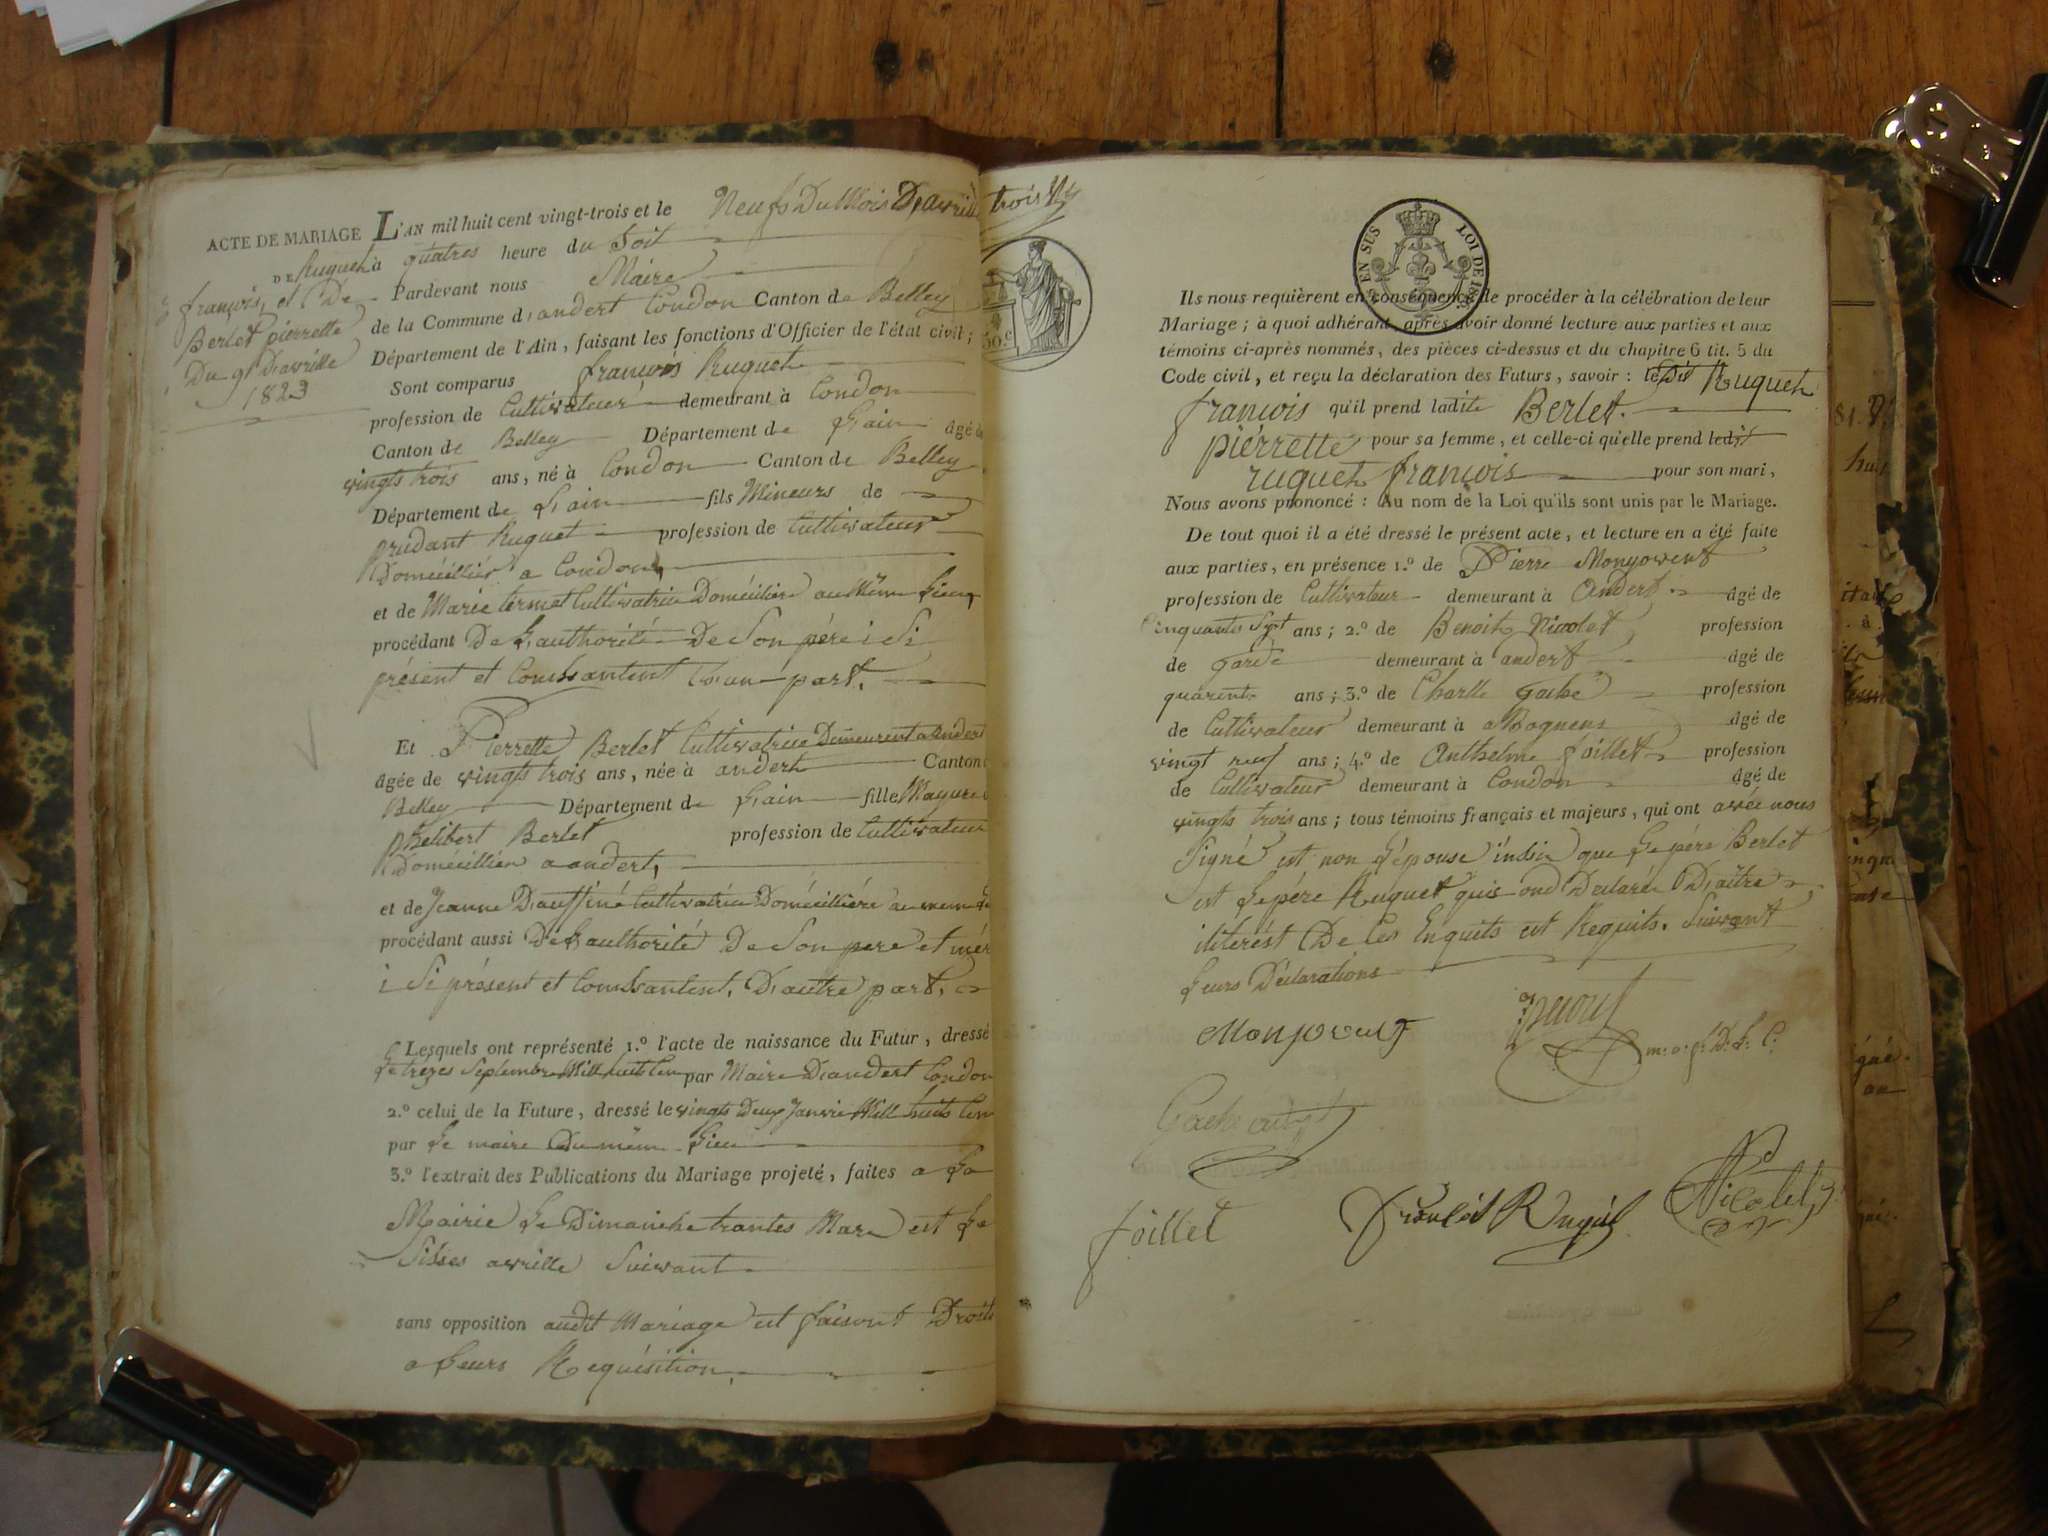 ACTE DE MARIAGE L'AN mil huit cent vingt-trois et le Neuf Du Mois D'avrille
DE Ruquet à quatres heure du Soit
françois, et De
Pardevant nous Maire
Berlet pierrette
de la Commune d'andert Condon Canton de Belley
Du 9 D'avrille
Département de l'Ain, faisant les fonctions d'Officier de l'état civil;
1823
Sont comparus françois Ruquet
profession de Cultivateur demeurant à Condon
Canton de Belley Département de L'ain âgé de
vingts trois ans, né à Condon Canton de Belley
Département de L'ain fils Mineurs de
prudant Ruquet profession de Cultivateur
Doméiillier a Condon,
et de Marie termet Cultivatrice Doméiilière au Même Lieu,
procédant De L'authorité De Son père i Si
présent et Conssantent D'un part.
Et Pierrette Berlet Cultivatrice Demeurent a andert
âgée de vingts trois ans, née à andert Canton
Belley Département de L'ain fille Mayure
phelibert Berlet profession de Cultivateur
Doméiillier a andert,
et de Jeanne Dauffiné Cultivatrice Doméiilliére au mem
procédant aussi De L'authorité De Son pere et mér
i Si présent et Conssantent, D'autre part,
Lesquels ont représenté 1.º l'acte de naissance du Futur, dressé
Le trézes Septembre Mill huit Cen par Maire D'andert Condon
2.º celui de la Future, dressé le vingts Deux Janvie Mill huit Cen
par Le maire Du même Lieu
3.º l'extrait des Publications du Mariage projeté, faites a La
Mairie Le Dimanche trantes Mars est Le
Sisses avrille Suivant
sans opposition audit Mariage et faisant Droite
a Leurs Requisition,
trois
50 c
EN SUS LOI DE 1816
Ils nous requièrent en conséquence de procéder à la célébration de leur
Mariage; à quoi adhérant, après avoir donné lecture aux parties et aux
témoins ci-après nommés, des pièces ci-dessus et du chapitre 6 tit. 5 du
Code civil, et reçu la déclaration des Futurs, savoir: ledit Ruquet
françois qu'il prend ladite Berlet.
pierrette pour sa femme, et celle-ci qu'elle prend ledit
ruquet françois pour son mari,
Nous avons prononcé: Au nom de la Loi qu'ils sont unis par le Mariage.
De tout quoi il a été dressé le présent acte, et lecture en a été faite
aux parties, en présence 1.º de Pierre Monjovent
profession de Cultivateur demeurant à Andert. âgé de
Cinquantes Sept ans; 2.º de Benoit Nicolet profession
de Garde demeurant à andert âgé de
quarente ans; 3.º de Charlle Gache profession
de Cultivateur demeurant à âgé de
vingt neuf ans; 4.º de Anthelme foillet profession
de Cultivateur demeurant à Condon âgé de
vingts trois ans; tous témoins français et majeurs, qui ont avée nous
Signé est non L'épouse indsi que Le pére Berlet
est Le pére Ruquet quis ond Declarée D'aitre
ilitérést De Ces Enquits est Requits. Suivant
Leurs Déclarations
Monjovent
m: o: f: D: L: C:
Gache
foillet
françois Ruquet
Nicolet